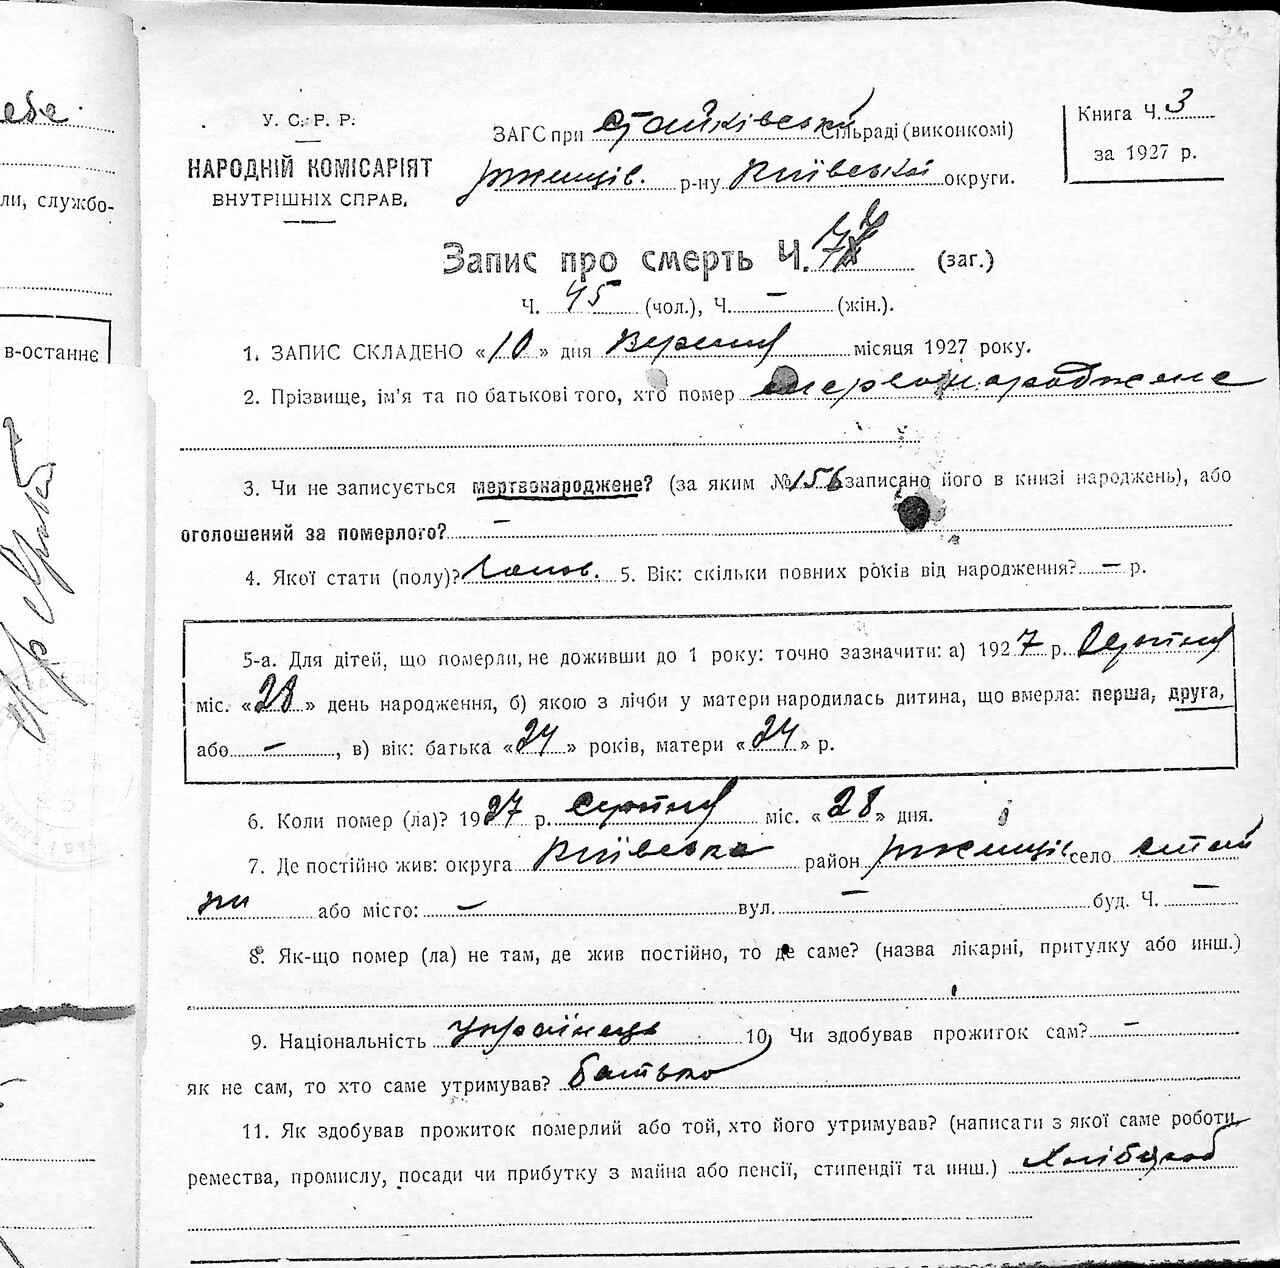 У. С. Р. Р.
НАРОДНІЙ КОМІСАРІЯТ
ВНУТРІШНІХ СПРАВ.
ЗАГС при Стайківській сільраді (виконкомі)
Ржищів. р-ну Київської округи.
Книга Ч. 3
за 1927 р.
Запис про смерть Ч. (заг.)
Ч. 45 (чол.), Ч. — (жін.).
1. ЗАПИС СКЛАДЕНО «10» дня Вересня місяця 1927 року.
2. Прізвище, ім'я та по батькові того, хто помер мертвонароджене
3. Чи не записується мертвонароджене? (за яким № 156 записано його в книзі народжень), або
оголошений за померлого? —
4. Якої стати (полу)? Чолов. 5. Вік: скільки повних років від народження? — р.
5-а. Для дітей, що померли, не доживши до 1 року: точно зазначити: а) 1927 р. Серпня
міс. «28» день народження, б) якою з лічби у матери народилась дитина, що вмерла: перша, друга,
або —, в) вік: батька «24» років, матери «24» р.
6. Коли помер (ла)? 1927 р. Серпня міс. «28» дня.
7. Де постійно жив: округа Київська район Ржищів село Стай
ки або місто: — вул. — буд. Ч. —
8. Як-що помер (ла) не там, де жив постійно, то де саме? (назва лікарні, притулку або инш.)
9. Національність Українець 10. Чи здобував прожиток сам? —
як не сам, то хто саме утримував? батько
11. Як здобував прожиток померлий або той, хто його утримував? (написати з якої саме роботи,
ремества, промислу, посади чи прибутку з майна або пенсії, стипендії та инш.) Хлібороб
ли, службо-
в-останнє